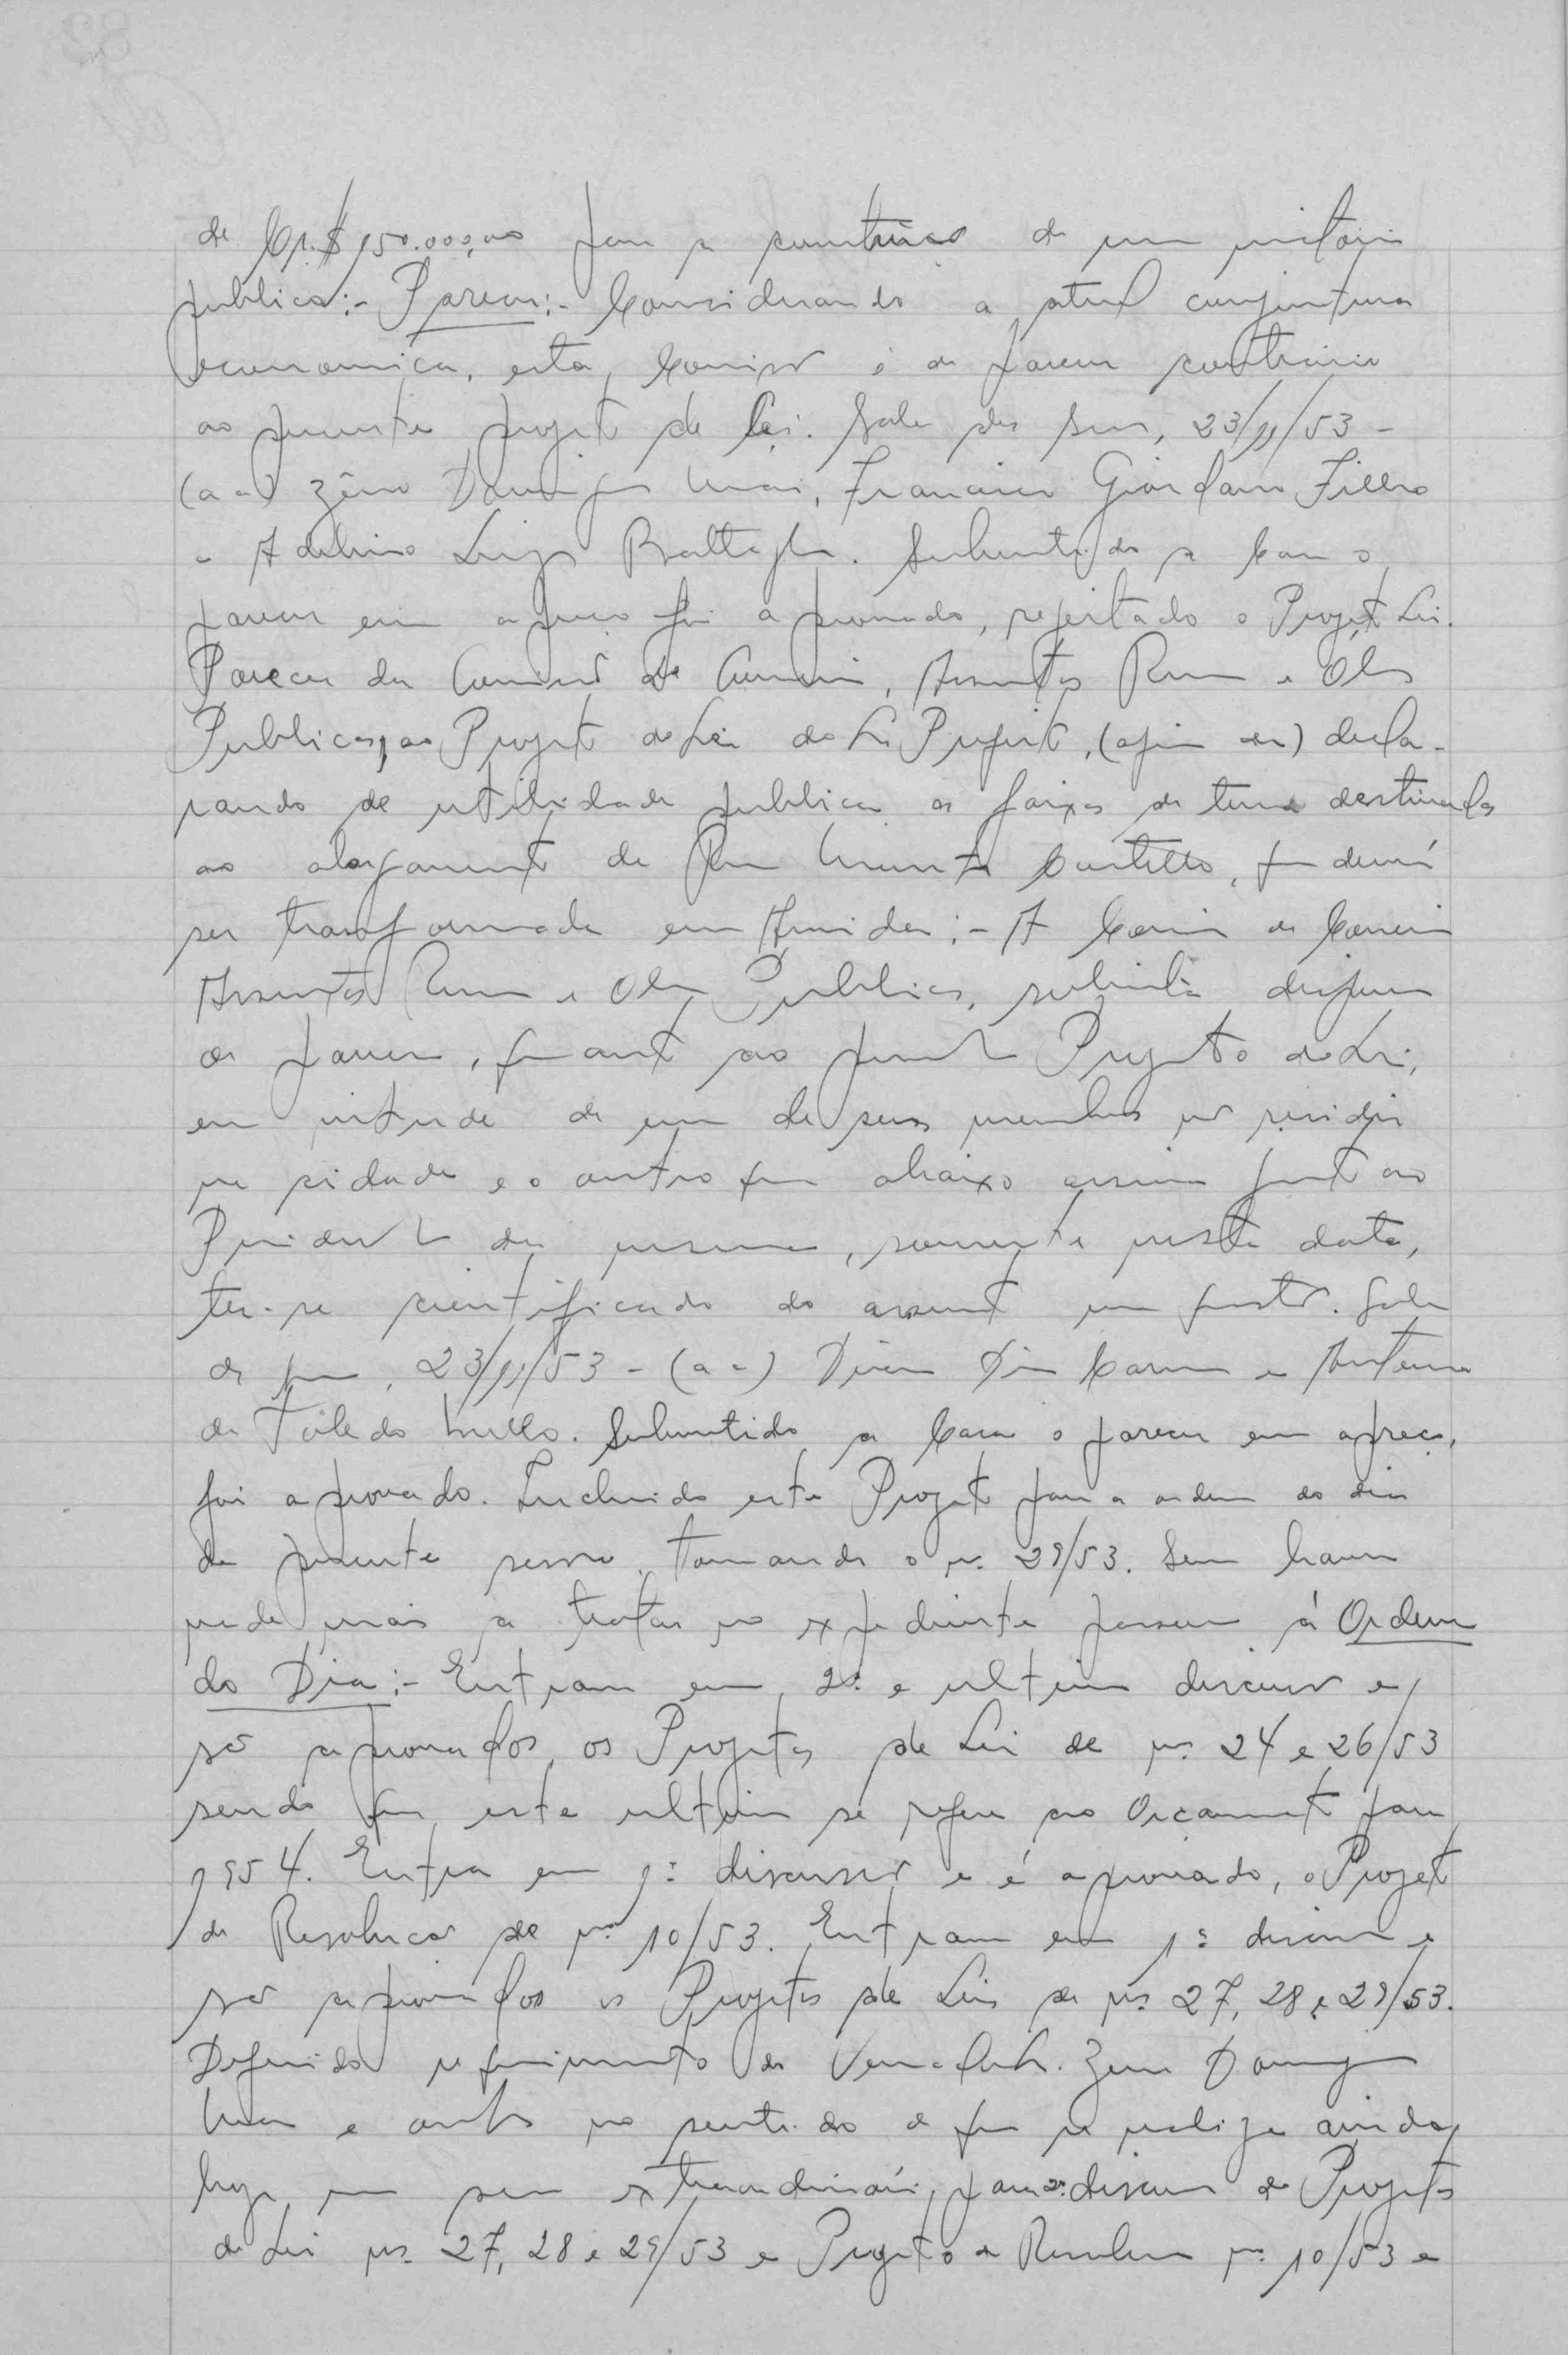 de Cr.$ 150.000,00 para a construcao de um mictorio
publico:- Parecer:- Considerando a atual conjuntura
economica, esta Comissão é de parecer contrario
ao presente projeto de lei. Sala das Sessões, 23/11/53 -
(a a) Zêno Domingos Maia, Francisco Giordano Filho
e Adelino Luiz Battaglia. Submetido a Casa o
parecer em apreço foi aprovado, rejeitado o Projeto Lei.
Parecer da Comissão de, Assuntos Rurais e Obras
Publicas, ao Projeto de Lei do Sr. Prefeito, decla-
rando de utilidade publica as faixas de terra destinadas
ao alargamento da Rua Castello, que deverá
ser transformada em Avenida:- A Comissão de
Assuntos Rurais e Obras Publicas, solicita dispensa
de parecer, quanto ao presente Projeto de Lei,
em virtude de um de seus membros não residir
na cidade e o outro que abaixo assina junto ao
Presidente da mesma, somente nesta data,
ter-se cientificado do assunto em questão. Sala
das sessões, 23/11/53 - (a a) e Antenor
de Toledo Mello. Submetido a Casa o parecer em apreço,
foi aprovado. Incluido este Projeto para a ordem do dia
da presente sessão, tomando o nº 29/53. Sem haver
nada mais a tratar no expediente passou á Ordem
do Dia:- Entram em 2ª e ultima discussão e
são aprovados os Projetos de Lei de nº 24 e 26/53
sendo que este ultimo se refere ao Orçamento para
1954. Entra em 1ª discussão e é aprovado, o Projeto
de Resolucao de nº 10/53. Entram em 1ª discussão e
são aprovados os Projetos de Leis de nºs 27, 28 e 29/53.
Deferido requerimento do Vereador Sr. Zeno Domingos
Maia e outros no sentido de que se realize ainda
hoje, uma sessão extraordinária, para 2ª discussão dos Projetos
de Lei nºs 27, 28 e 29/53 e Projeto de Resolucao nº 10/53 e